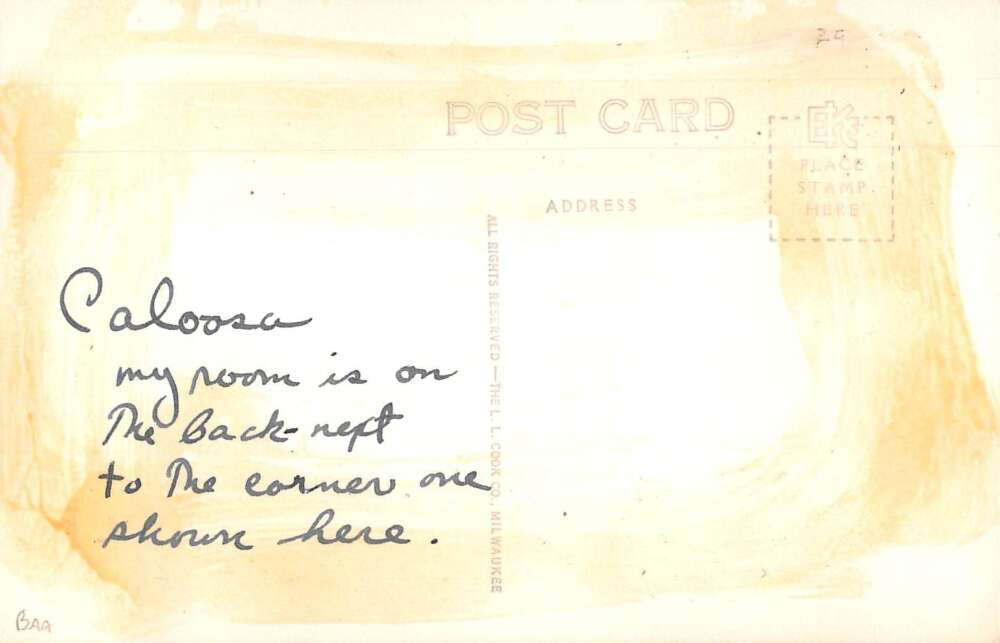 29
POST CARD
EKC
PLACE
STAMP
HERE
ADDRESS
ALL RIGHTS RESERVED — THE L. L. COOK CO., MILWAUKEE
Caloosa
my room is on
The Back-next
to The corner one
shown here.
BAA